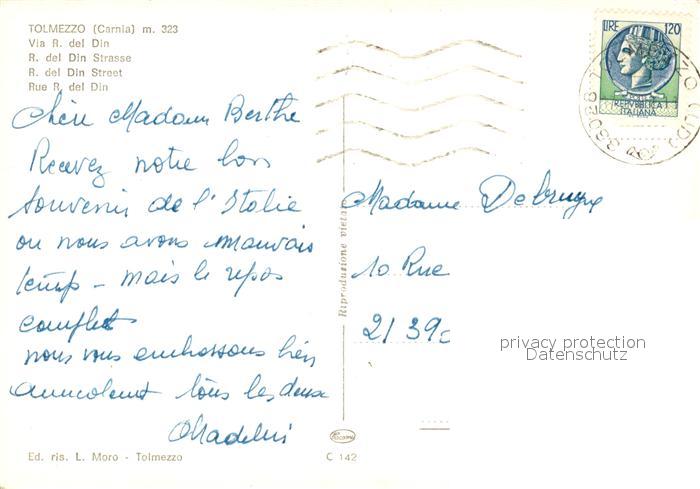 TOLMEZZO (Carnia) m. 323
Via R. del Din
R. del Din Strasse
R. del Din Street
Rue R. del Din
Chère Madame Berthe
Recevez notre bon
souvenir de l'Italie
ou nous avons mauvais
temps - mais le repos
complet
nous vous embrassons bien
amicalement tous les deux
Ed. ris. L. Moro - Tolmezzo
C 142
Riproduzione vietata
LIRE 120
REPUBBLICA
ITALIANA
33028
Madame Debruyne
10 Rue
privacy protection
Datenschutz